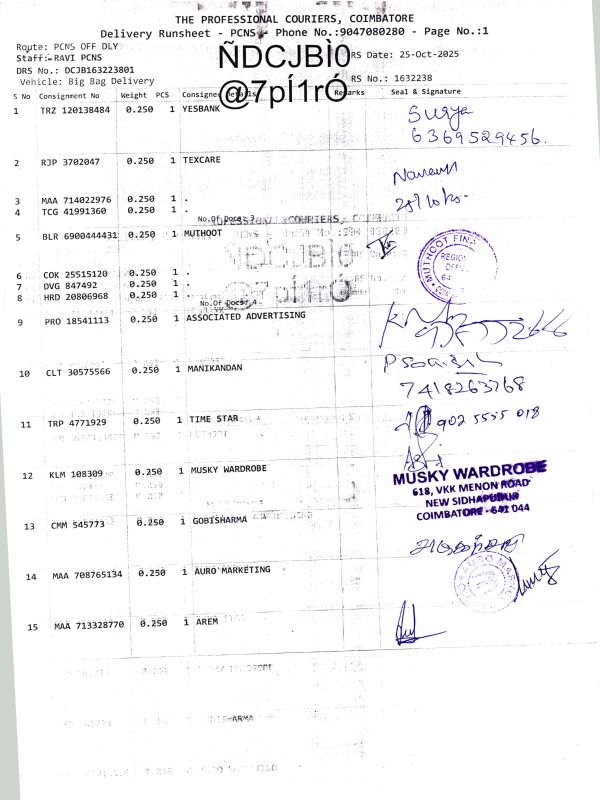 THE PROFESSIONAL COURIERS, COIMBATORE
Delivery Runsheet - PCNS - Phone No.:9047080280 - Page No.:1
Route: PCNS OFF DLY
Staff:-RAVI PCNS
ÑDCJBÌ0
RS Date: 25-Oct-2025
DRS No.: DCJB163223801
@7pÍ1rÓ
RS No.: 1632238
Vehicle: Big Bag Delivery
S No Consignment No Weight PCS Consignee Details Remarks Seal & Signature
1 TRZ 120138484 0.250 1 YESBANK
Surya
6369529456.
2 RJP 3702047 0.250 1 TEXCARE
Naveen
3 MAA 714022976 0.250 1 .
4 TCG 41991360 0.250 1 .
No.Of Docs: 3
5 BLR 6900444431 0.250 1 MUTHOOT
MUTHOOT FINA
REGION
OFFI
64
6 COK 25515120 0.250 1 .
7 DVG 847492 0.250 1 .
8 HRD 20806968 0.250 1 .
No.Of Docs: 4
9 PRO 18541113 0.250 1 ASSOCIATED ADVERTISING
10 CLT 30575566 0.250 1 MANIKANDAN
7418263768
11 TRP 4771929 0.250 1 TIME STAR
902 5555 018
12 KLM 108309 0.250 1 MUSKY WARDROBE
MUSKY WARDROBE
618, VKK MENON ROAD
NEW SIDHAPUDUR
COIMBATORE - 641 044
13 CMM 545773 0.250 1 GOBISHARMA
14 MAA 708765134 0.250 1 AURO MARKETING
15 MAA 713328770 0.250 1 AREM